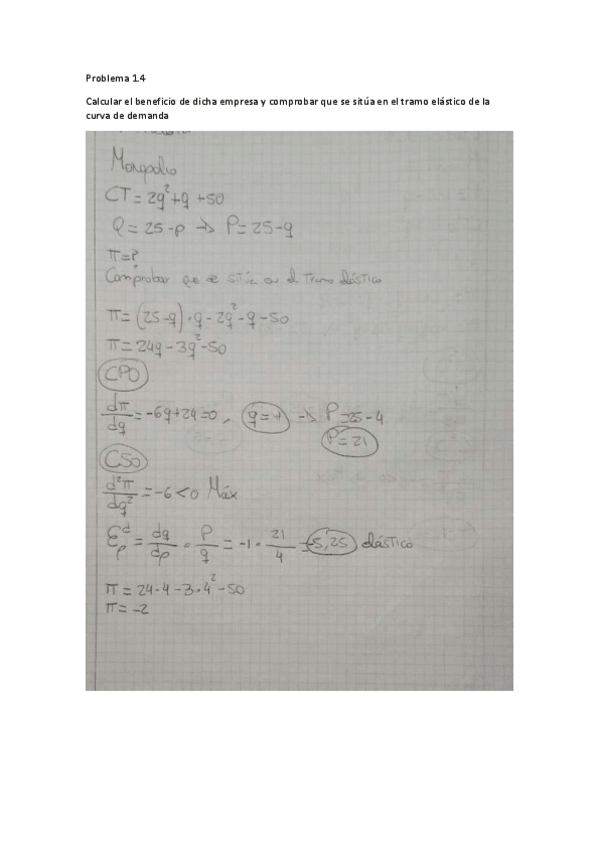 Problema 1.4
Calcular el beneficio de dicha empresa y comprobar que se sitúa en el tramo elástico de la
curva de demanda
Monopolio
CT = 2q² + q + 50
Q = 25 - p → P = 25 - q
π = ?
Comprobar que se sitúa en el tramo elástico
π = (25 - q) · q - 2q² - q - 50
π = 24q - 3q² - 50
CPO
dπ/dq = -6q + 24 = 0, q = 4 → P = 25 - 4
P = 21
CSO
d²π/dq² = -6 < 0 Máx
Ɛᵈₚ = dq/dp · P/q = -1 · 21/4 = -5,25 elástico
π = 24·4 - 3·4² - 50
π = -2